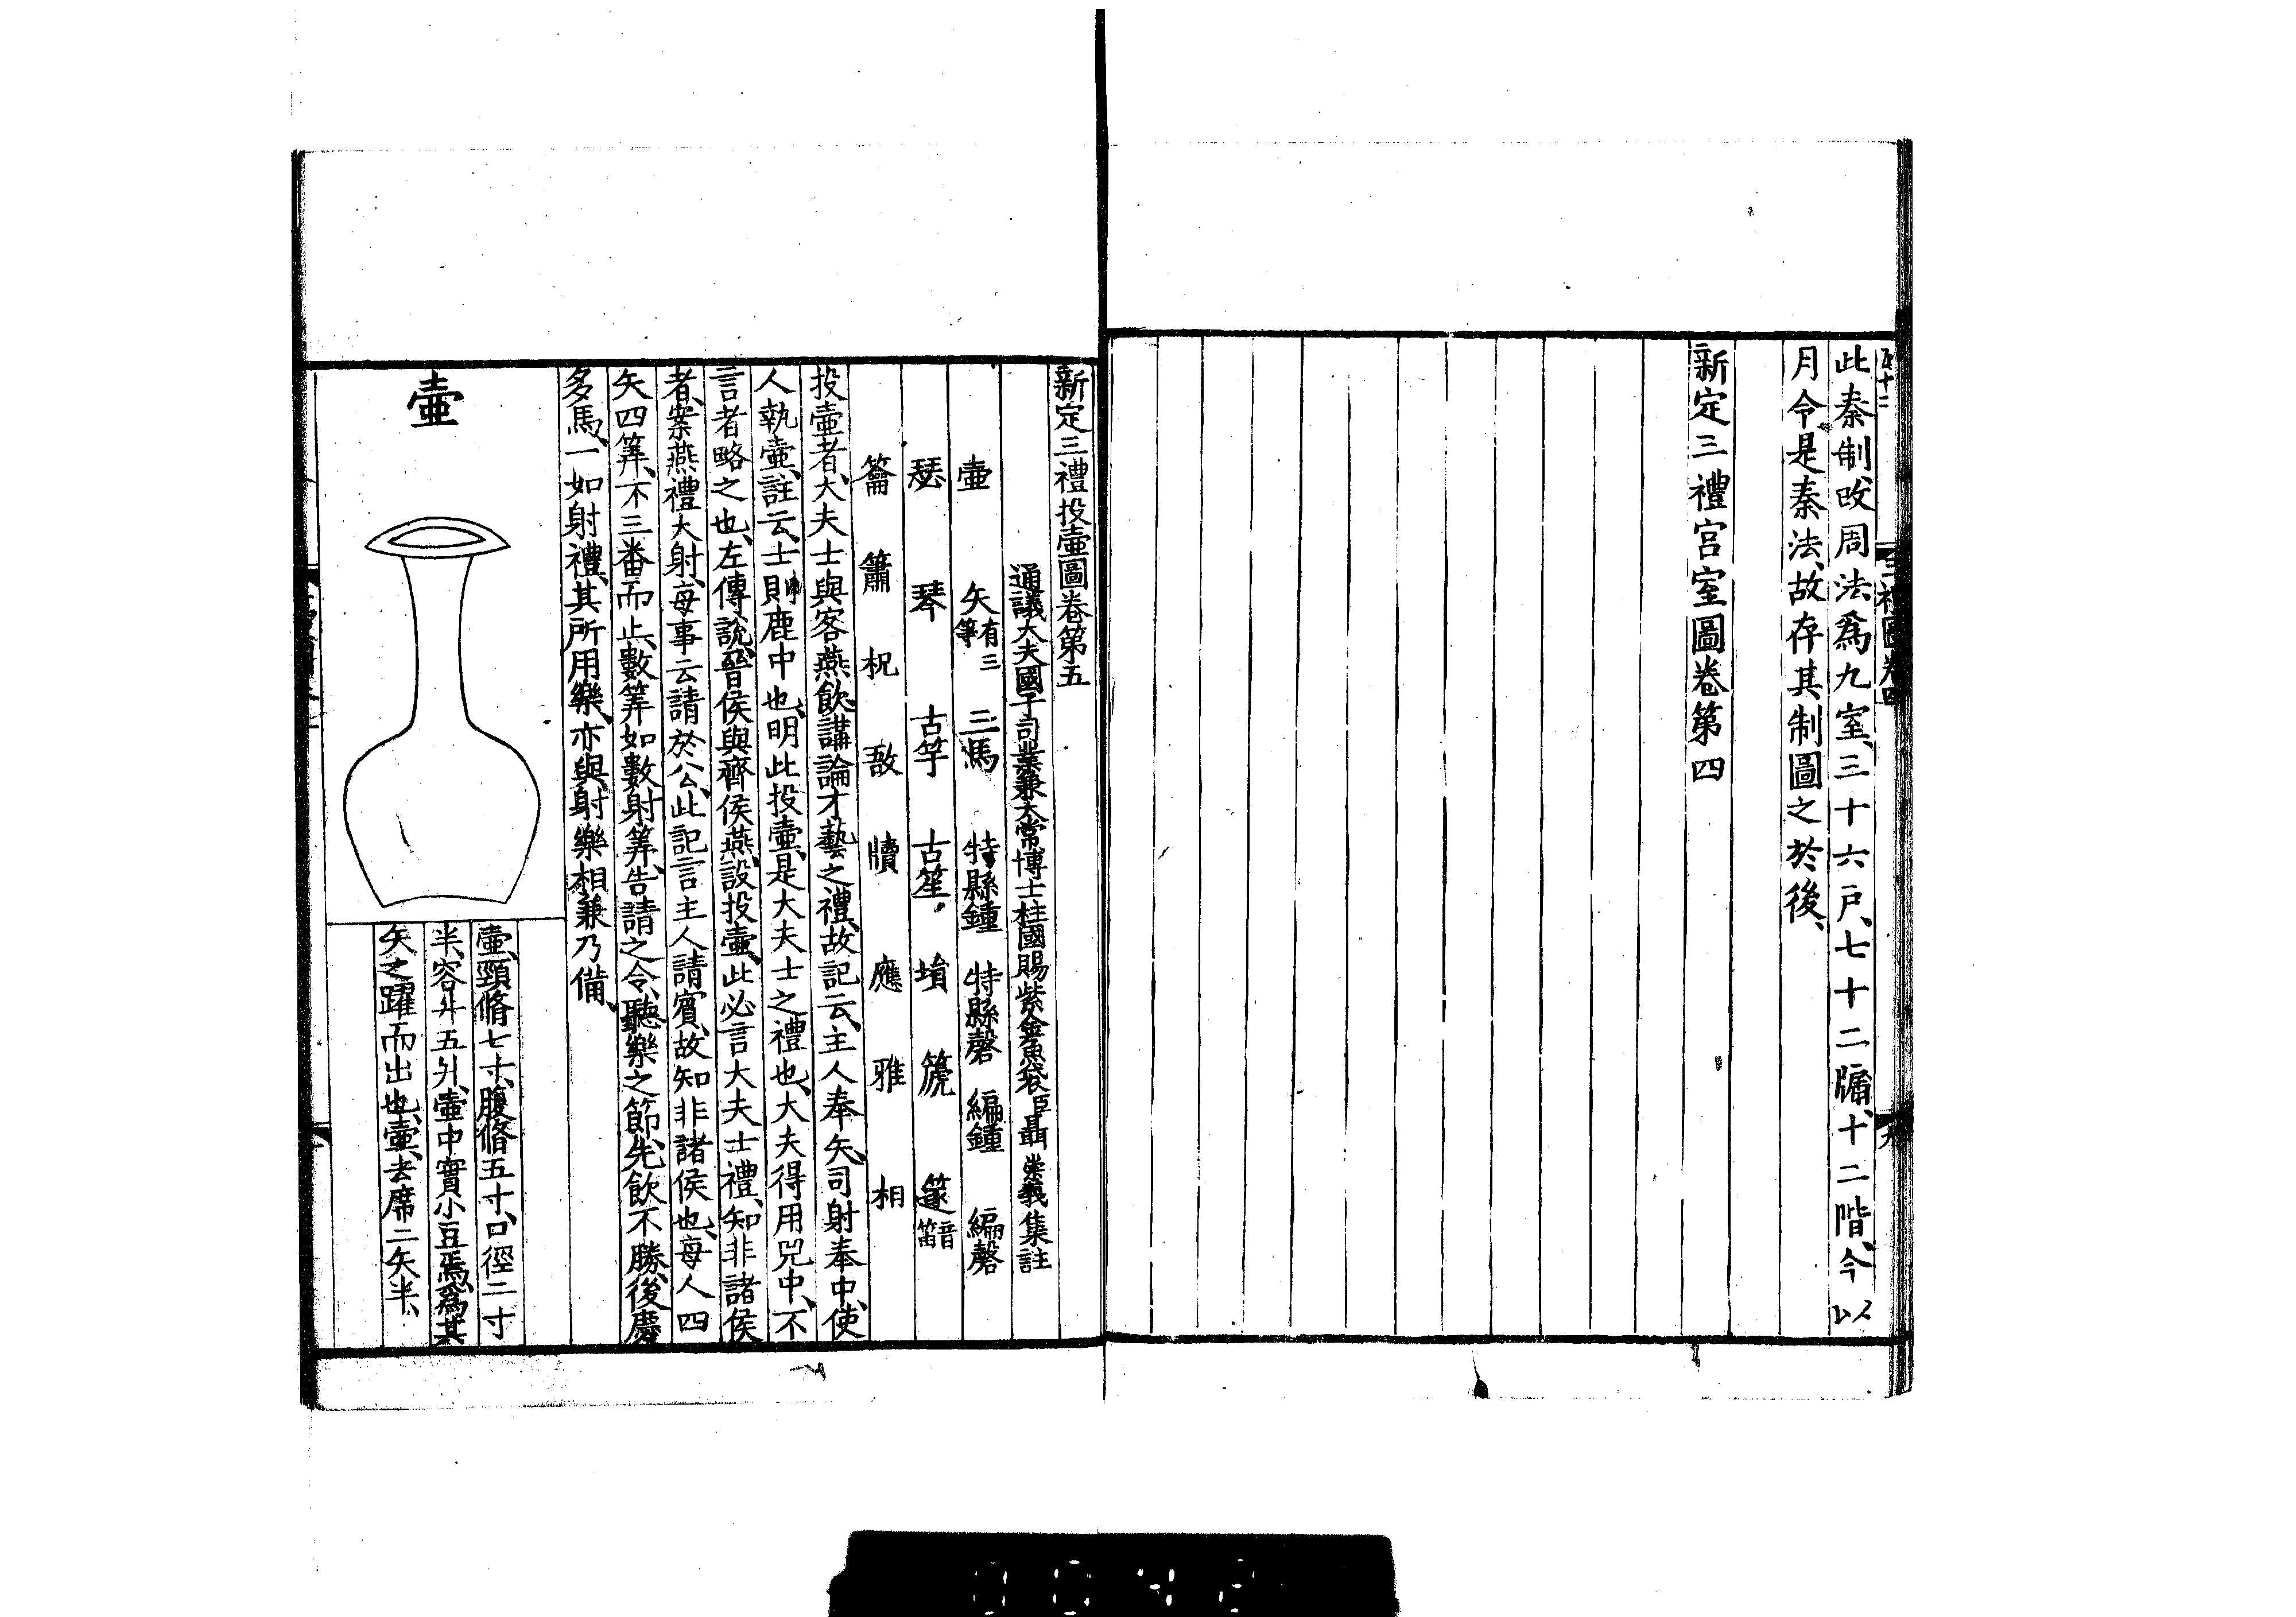 此秦制、改周法爲九室、三十六戶、七十二牖、十二階、今以
月令是秦法、故存其制圖之於後、
新定三禮宫室圖卷第四
三禮圖卷四
新定三禮投壷圖卷第五
通議大夫國子司業兼太常博士柱國賜紫金魚袋臣聶崇義集註
壷 矢有三等 三馬 特縣鍾 特縣磬 編鍾 編磬
瑟 琴 古竽 古笙 塤 篪 篴音笛
籥 簫 柷 敔 牘 應 雅 相
投壷者、大夫士與客燕飲、講論才藝之禮、故記云、主人奉矢、司射奉中、使
人執壷、註云、士則鹿中也、明此投壷、是大夫士之禮也、大夫得用兕中、不
言者略之也、左傳說、晉侯與齊侯燕、設投壷、此必言大夫士禮、知非諸侯
者、案燕禮大射、每事云請於公、此記言主人請賓、故知非諸侯也、每人四
矢四筭、不三番而止、數筭如數射筭、告請之令、聽樂之節、先飲不勝、後慶
多馬、一如射禮、其所用樂、亦與射樂相兼乃備、
壷
壷、頸脩七寸、腹脩五寸、口徑二寸
半、容斗五升、壷中實小豆焉、爲其
矢之躍而出也、壷、去席二矢半、